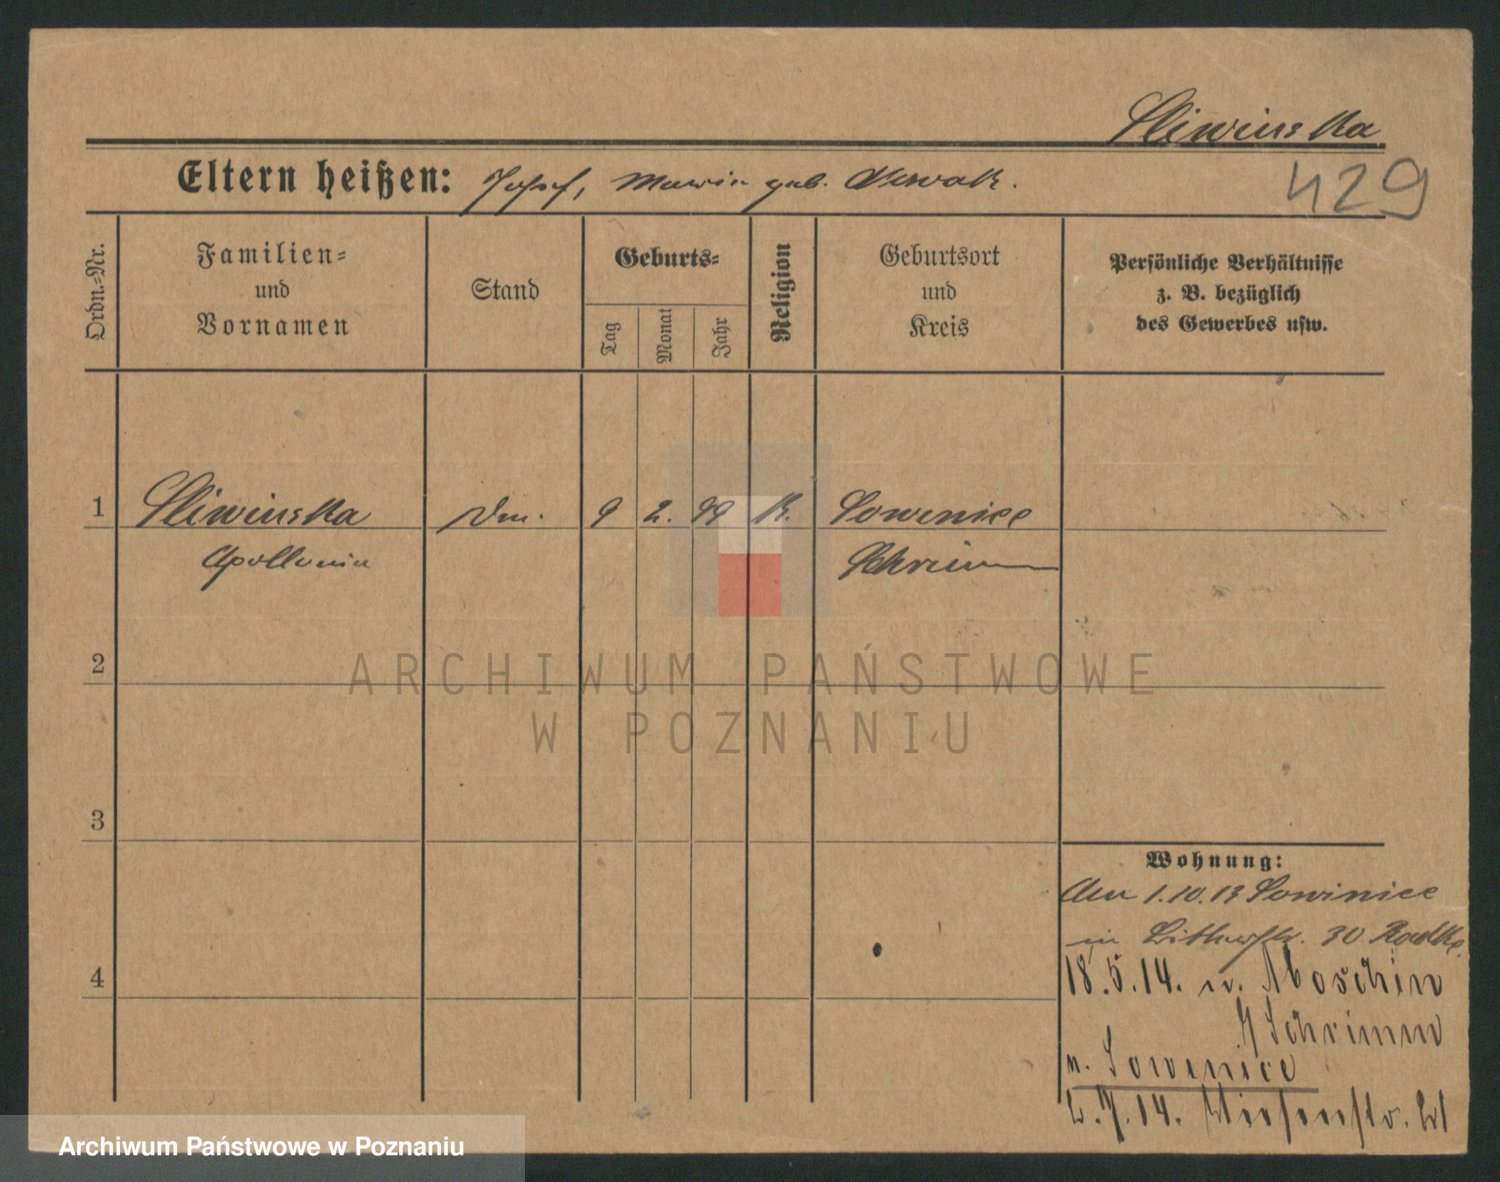 Sliwinska
Eltern heißen: Josef, Maria geb. Nowak.
429
Ordn.-Nr.
Familien-
und
Vornamen
Stand
Geburts-
Tag
Monat
Jahr
Religion
Geburtsort
und
Kreis
Persönliche Verhältnisse
z. B. bezüglich
des Gewerbes usw.
1 Sliwinska 9 2. 99 K. Sowinice
Apollonia Schrimm
2
ARCHIWUM PAŃSTWOWE
W POZNANIU
3
4
Wohnung:
1.10.13 Sowinice
in 30
18.5.14. n. Moschin
Schrimm
n. Sowinice
2.7.14. Wiesenstr.
Archiwum Państwowe w Poznaniu